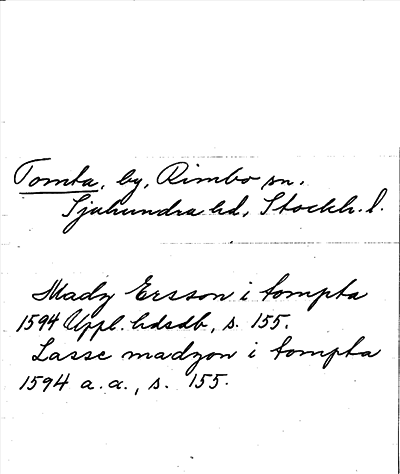 Tomta, by, Rimbo sn.
Sjuhundra hd, Stockh. l.
Mady Ersson i tompta
1594 Uppl. hdsdb, s. 155.
Lasse madzon i tompta
1594 a. a., s. 155.